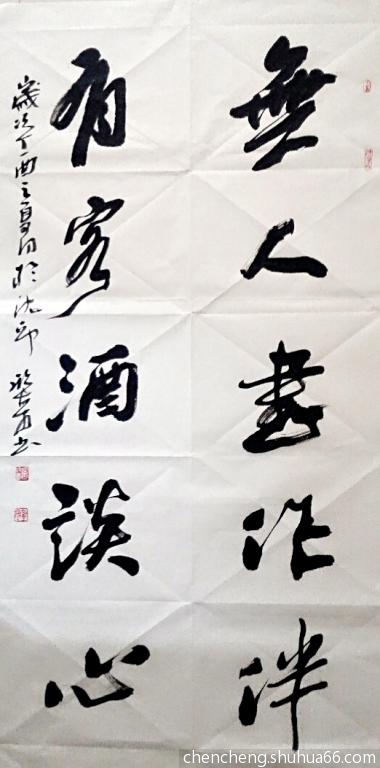 無人書作伴
有客酒談心
歲次丁酉之夏日於沈 書
chencheng.shuhua66.com